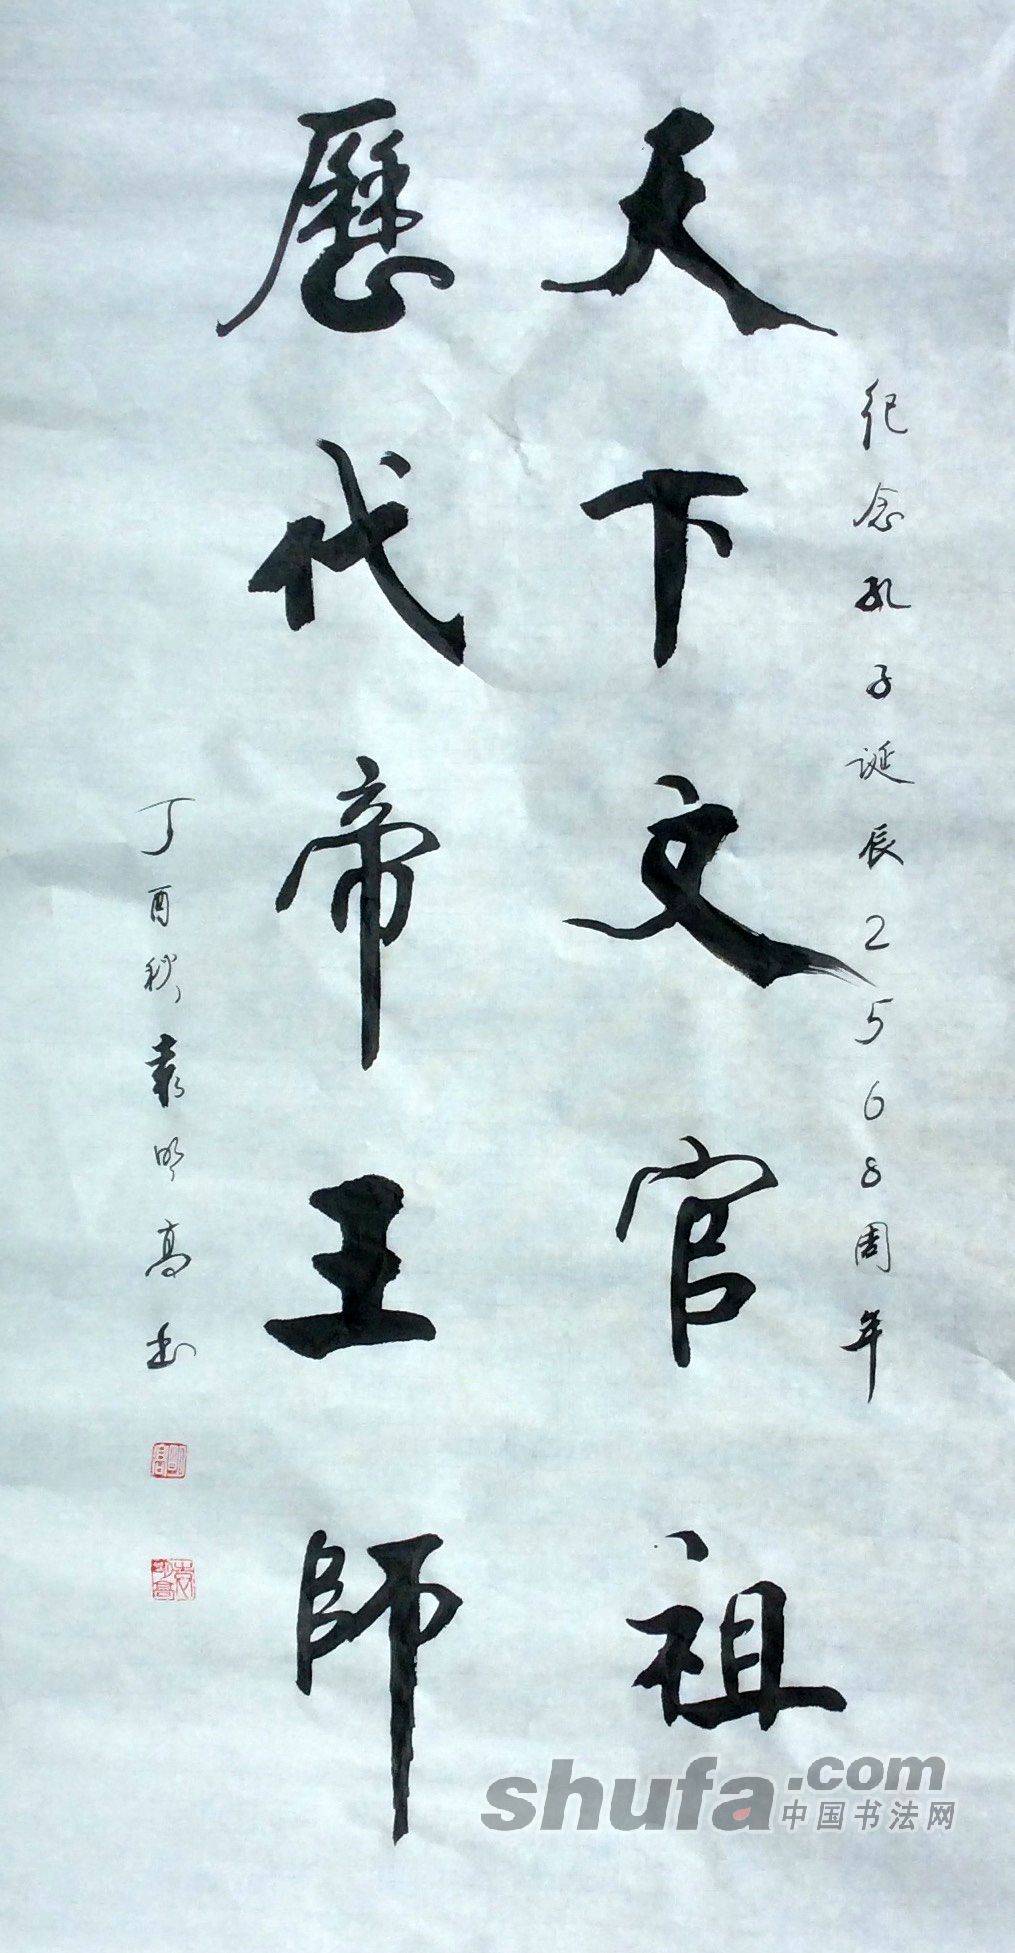 纪念孔子诞辰2568周年
天下文官祖
歷代帝王師
丁酉秋袁明高书
明高
袁明高
shufa.com
中国书法网